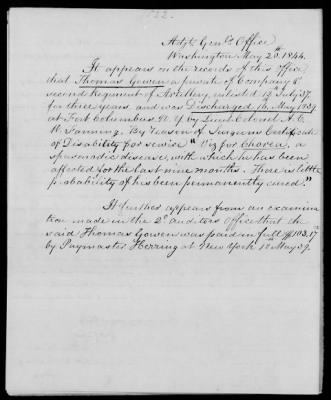 Adjt. Genl's Office
Washington May 20th 1844.
It appears on the records of this office,
that Thomas Gowen a private of Company
second Regiment of Artillery, enlisted 19th July '37,
for three years, and was Discharged 16, May 1839
at Fort Columbus N. Y. by Lieut Colonel A. C.
W. Fanning. By reason of Surgeons Certificate
of Disability for service "Viz for Chorea, a
spasmodic disease, with which he has been
affected for the last nine months. There is little
probability of his been permanently cured."
It further appears from an examina
tion made in the 2d auditors Office that the
said Thomas Gowen was paid in full $103.17
by Paymaster Herring at New York 18 May 39.